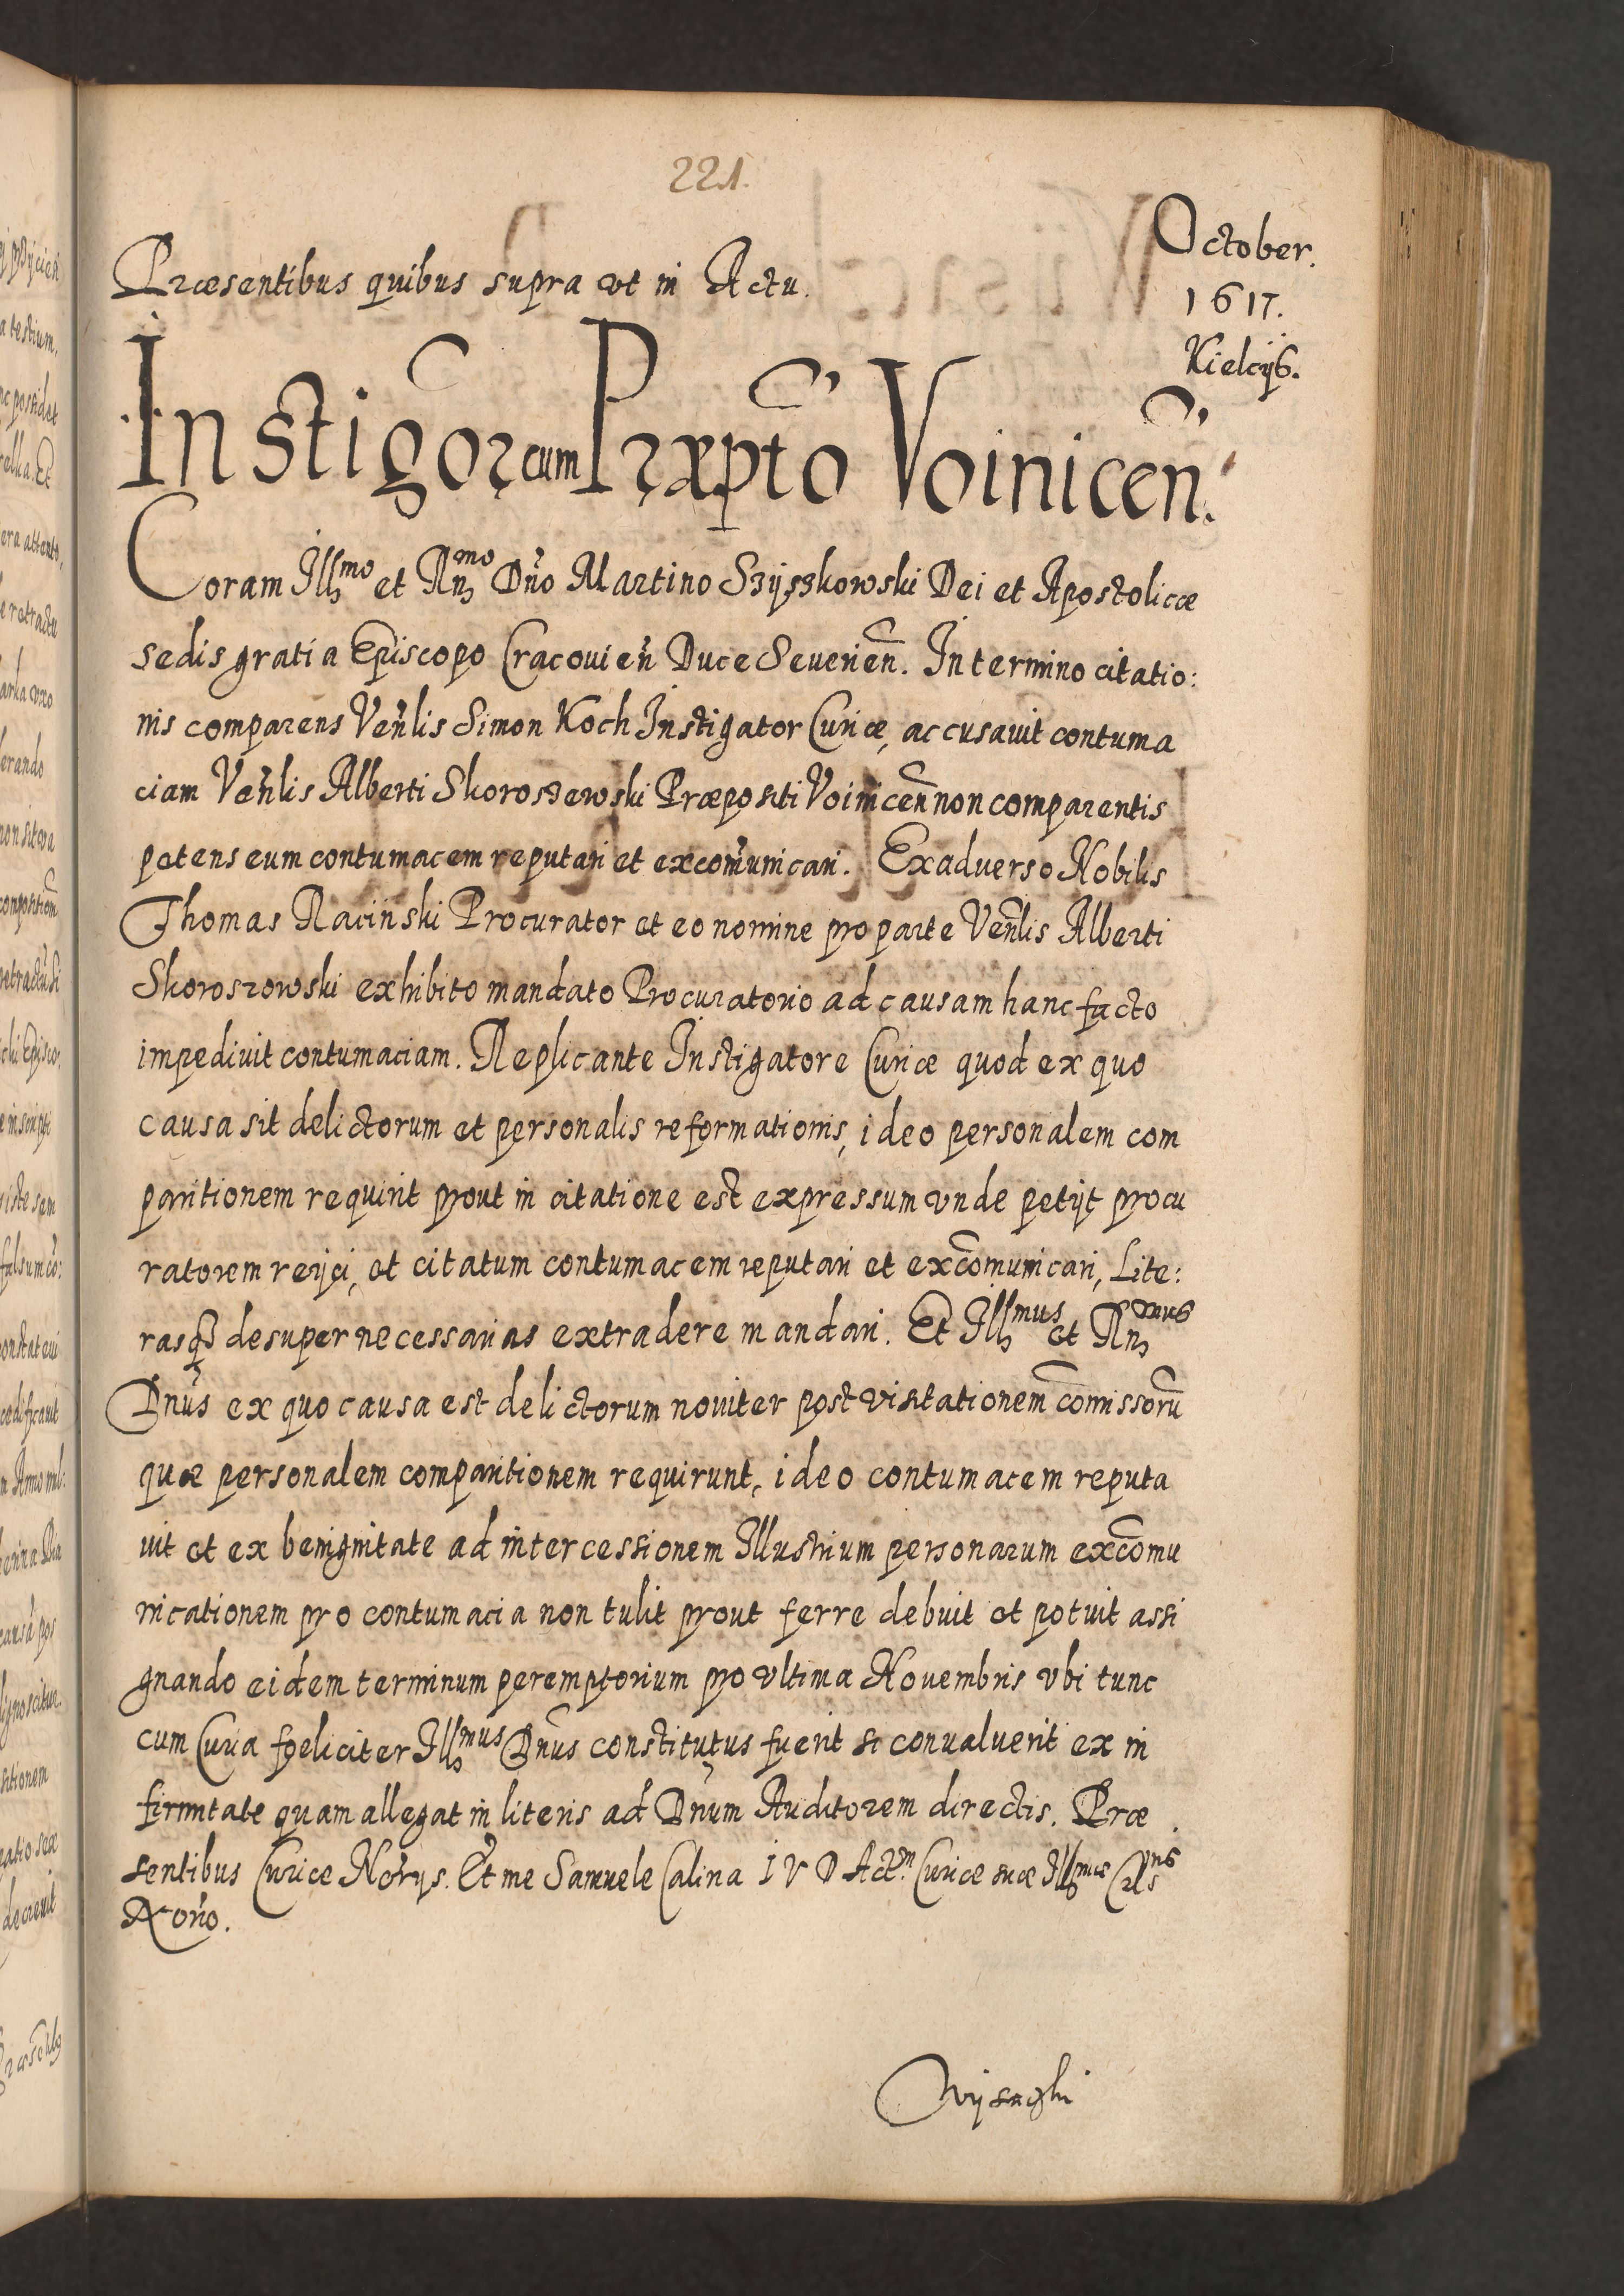 221.
October.
1617.
Kielcijs.
Præsentibus quibus supra vt in Actu.
Instigor cum Præpto Voinicen.
Coram Illmo et Rnmo Dno Martino Szyszkowski Dei et Apostolicæ
sedis gratia Episcopo Cracovien Duce Severien. In termino citatio:
nis comparens Venlis Simon Koch Instigator Curiæ, accusavit contuma
ciam Venlis Alberti Skoroszewski Præpositi Voinicen non comparentis
petens eum contumacem reputari et excomunicari. Ex adverso Nobilis
Thomas Racinski Procurator et eo nomine pro parte Venlis Alberti
Skoroszowski exhibito mandato Procuratorio ad causam hanc facto
impedivit contumaciam. Replicante Instigatore Curiæ quod ex quo
causa sit delictorum et personalis reformationis, ideo personalem com
paritionem requirit prout in citatione est expressum vnde petijt procu
ratorem reijci, et citatum contumacem reputari et excomunicari, Lite:
rasq3 desuper necessarias extradere mandari. Et Illmus et Rnmus
Dnus ex quo causa est delictorum noviter post visitationem comissoru
quæ personalem comparitionem requirunt, ideo contumacem reputa
vit et ex benignitate ad intercessionem Illustrium personarum excomu
nicationem pro contumacia non tulit prout ferre debuit et potuit assi
gnando eidem terminum peremptorium pro vltima Novembris vbi tunc
cum Curia fœliciter Illmus Dnus constitutus fuerit si convaluerit ex in
firmitate quam allegat in literis ad Dnum Auditorem directis. Præ
sentibus Curiæ Norijs. Et me Samuele Calina I V D Actm Curiæ suæ Illmæ
Noro.